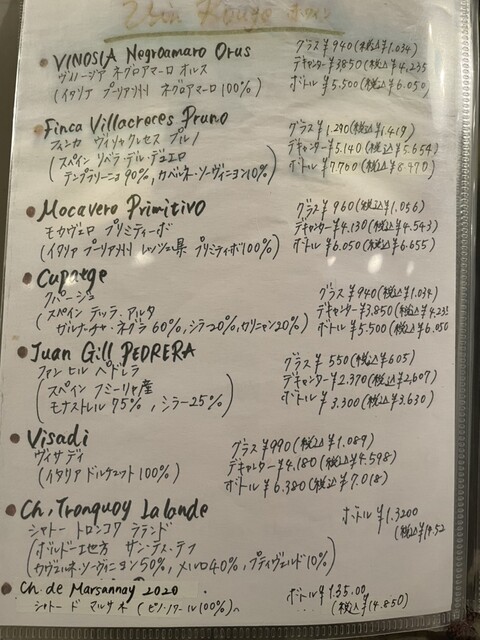 Vin Rouge 赤ワイン
VINOSIA Negroamaro Orus グラス ¥940(税込¥1.034)
ヴィノージア ネグロアマーロ オルス デキャンター ¥3850(税込¥4,235
(イタリア プーリア州 ネグロアマーロ 100%) ボトル ¥5.500(税込¥6.050)
Finca Villacreces Pruno グラス ¥1.290(税込¥1.419)
フィンカ ヴィリャクレセス プルノ デキャンター ¥5.140(税込¥5.654)
(スペイン リベラ・デル・デュエロ ボトル ¥7.700(税込¥8.470)
テンプラリーニョ 90%, カベルネ・ソーヴィニヨン10%)
Mocavero Primitivo グラス ¥960(税込¥1.056)
モカヴェロ プリミティーボ デキャンター¥4.130(税込¥4.543)
(イタリア プーリア州 レッツェ県 プリミティーボ100%) ボトル ¥6.050(税込¥6.655)
Cupatge グラス ¥940(税込¥1.034)
クパージュ デキャンター¥3.850(税込¥4.235
(スペイン テッラ・アルタ ボトル ¥5.500(税込¥6.050
ガルナーチャ・ネグラ 60%, シラー20%, カリニャン20%)
Juan Gill PEDRERA グラス¥ 550(税込¥605)
ファン ヒル ペドレラ デキャンター¥2.370(税込¥2,607)
(スペイン フミーリャ産 ボトル ¥3.300(税込¥3.630)
モナストレル 75%, シラー25%)
Visadi グラス ¥990(税込¥1.089)
ヴィサディ デキャンター¥4.180(税込¥4.598)
(イタリア ドルチェット 100%) ボトル ¥6.380(税込¥7.018)
Ch, Tronquoy Lalande ボトル ¥1.3200
シャトー トロンコワ ラランド (税込¥14.52
(ボルドー地方 サン・テス・テフ
カヴェルネ・ソーヴィニヨン 50%, メルロ40%, プティヴェルド10%)
Ch. de Marsannay 2020 ボトル¥1.35.00
シャトー ド マルサネ (ピノ・ノワール100%) (税込¥14.850)